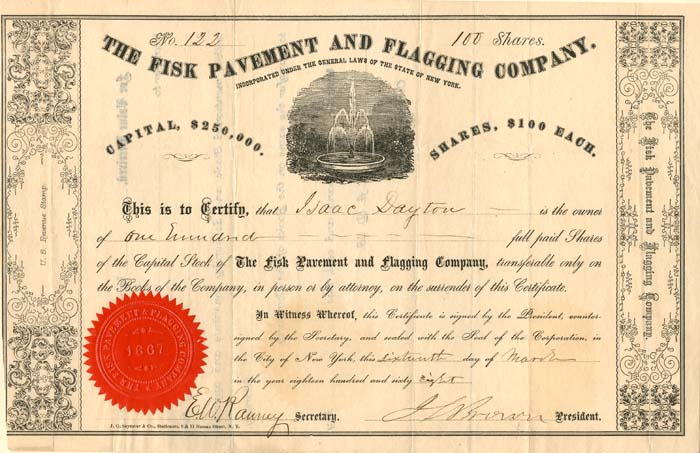 No. 122 100 Shares.
THE FISK PAVEMENT AND FLAGGING COMPANY.
INCORPORATED UNDER THE GENERAL LAWS OF THE STATE OF NEW YORK.
CAPITAL, $250,000. SHARES, $100 EACH.
This is to Certify, that Isaac Dayton is the owner
of One Hundred full paid Shares
of the Capital Stock of The Fisk Pavement and Flagging Company, transferable only on
the Books of the Company, in person or by attorney, on the surrender of this Certificate.
In Witness Whereof, this Certificate is signed by the President, counter-
signed by the Secretary, and sealed with the Seal of the Corporation, in
the City of New York, this Sixteenth day of March
in the year eighteen hundred and sixty Eight
E.W. Ranney Secretary. J. S. Brown President.
J. C. Seymour & Co., Stationers, 9 & 11 Nassau Street, N. Y.
THE FISK PAVEMENT & FLAGGING COMPANY
1867
U. S. Revenue Stamp.
The Fisk Pavement and Flagging Company.